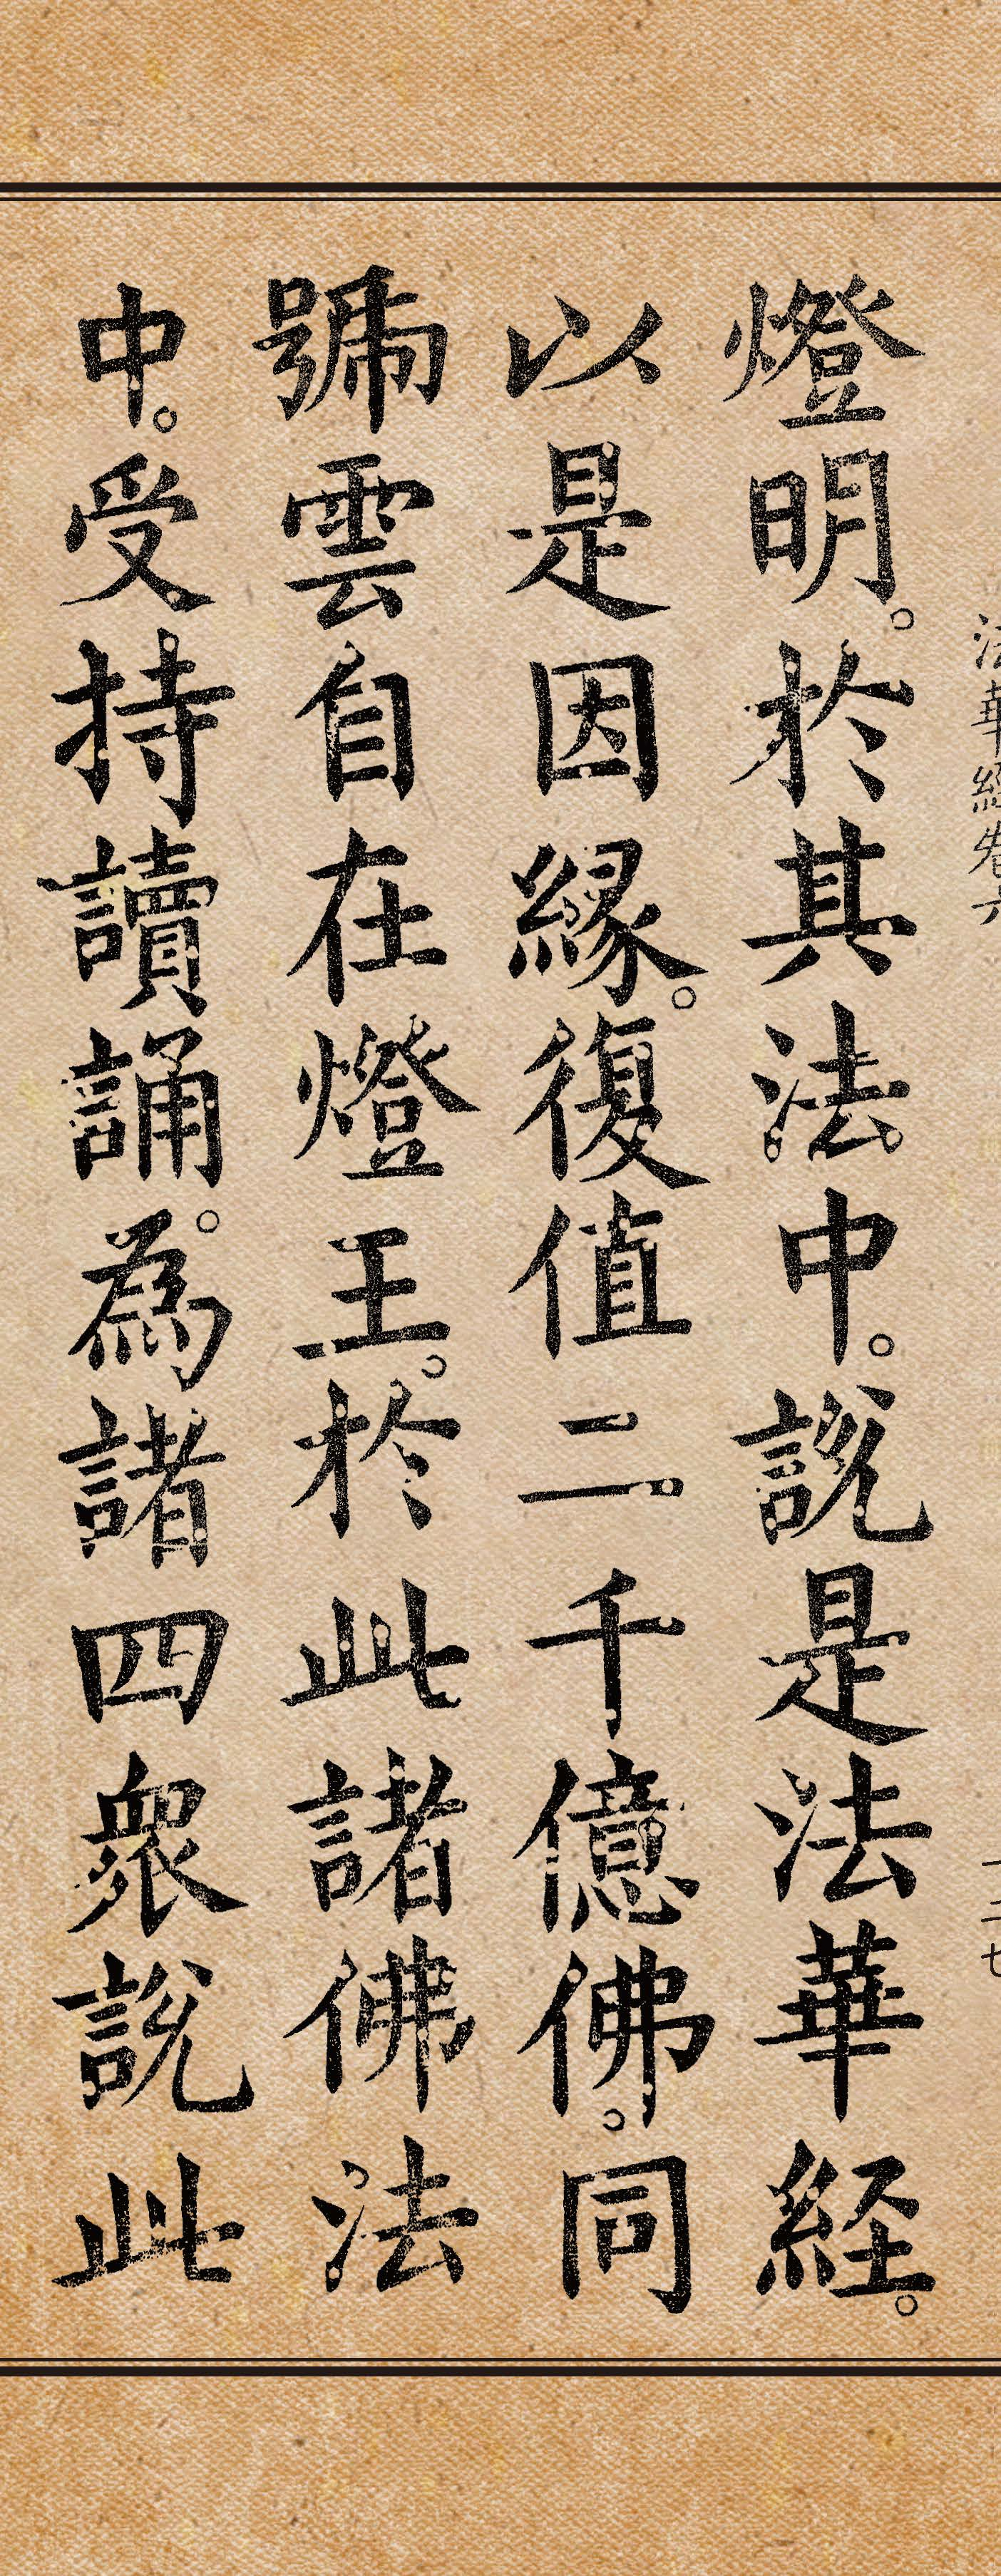 法華經卷六
一二七
燈明。於其法中。說是法華経。
以是因緣。復值二千億佛。同
號雲自在燈王。於此諸佛法
中。受持讀誦。為諸四眾說此